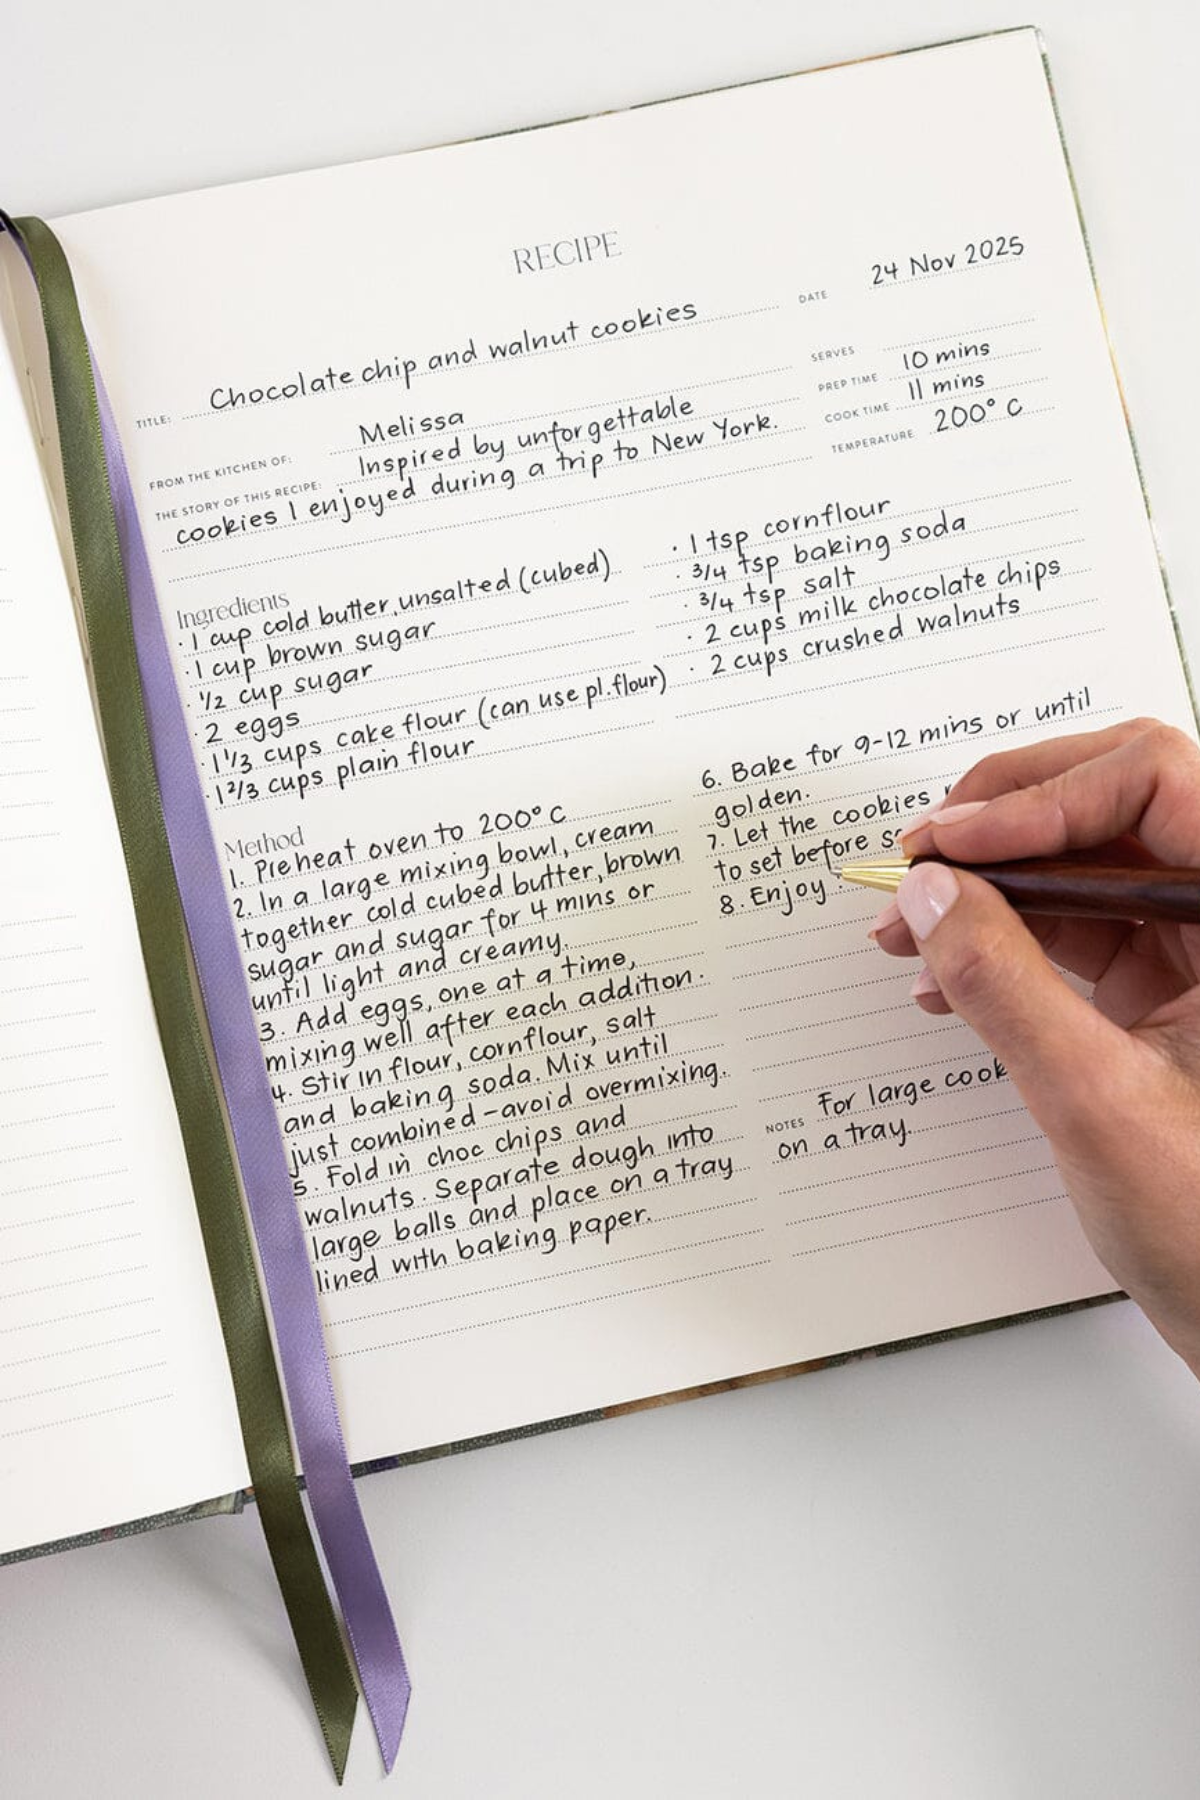 RECIPE
TITLE: Chocolate chip and walnut cookies
DATE 24 Nov 2025
FROM THE KITCHEN OF: Melissa
THE STORY OF THIS RECIPE: Inspired by unforgettable
cookies I enjoyed during a trip to New York.
SERVES
PREP TIME 10 mins
COOK TIME 11 mins
TEMPERATURE 200° C
Ingredients
· 1 cup cold butter, unsalted (cubed)
· 1 cup brown sugar
· 1/2 cup sugar
· 2 eggs
· 1 1/3 cups cake flour (can use pl. flour)
· 1 2/3 cups plain flour
· 1 tsp cornflour
· 3/4 tsp baking soda
· 3/4 tsp salt
· 2 cups milk chocolate chips
· 2 cups crushed walnuts
Method
1. Preheat oven to 200° C
2. In a large mixing bowl, cream
together cold cubed butter, brown
sugar and sugar for 4 mins or
until light and creamy.
3. Add eggs, one at a time,
mixing well after each addition.
4. Stir in flour, cornflour, salt
and baking soda. Mix until
just combined - avoid overmixing.
5. Fold in choc chips and
walnuts. Separate dough into
large balls and place on a tray
lined with baking paper.
6. Bake for 9-12 mins or until
golden.
7. Let the cookies
to set before
8. Enjoy
NOTES For large
on a tray.